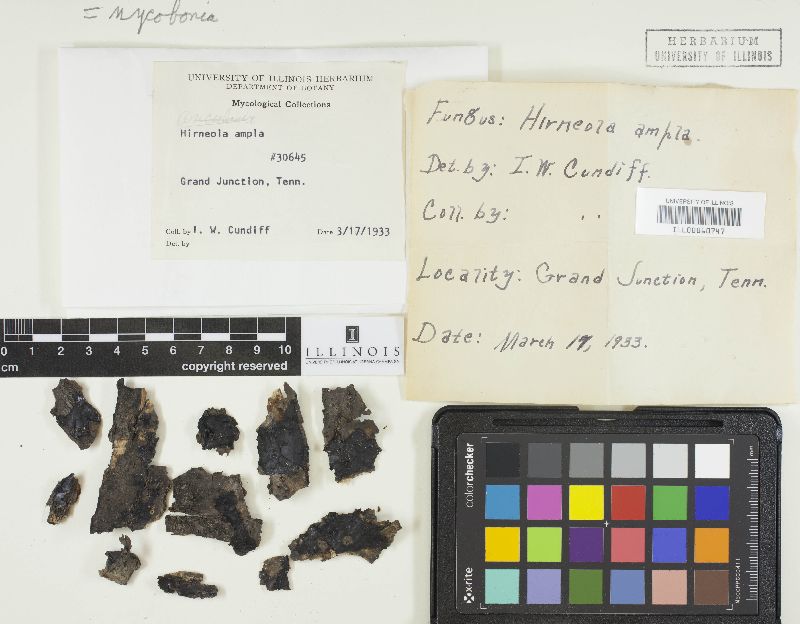 = Mycobonia
HERBARIUM
UNIVERSITY OF ILLINOIS
UNIVERSITY OF ILLINOIS HERBARIUM
DEPARTMENT OF BOTANY
Mycological Collections
Hirneola ampla
#30645
Grand Junction, Tenn.
Coll. by I. W. Cundiff Date 3/17/1933
Det. by
Fungus: Hirneola ampla.
Det. by: I. W. Cundiff.
Coll. by: . .
UNIVERSITY OF ILLINOIS
ILL00060747
Locality: Grand Junction, Tenn.
Date: March 17, 1933.
0 1 2 3 4 5 6 7 8 9 10
cm copyright reserved
I
ILLINOIS
colorchecker
x-rite